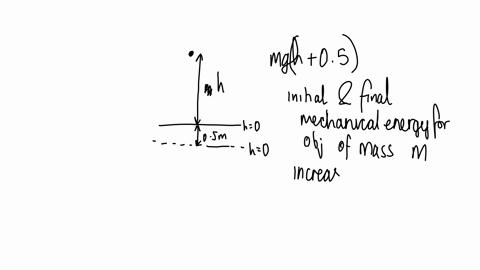 h
h=0
0.5m
h=0
mg(h+0.5)
initial & final
mechanical energy for
obj of mass M
increas